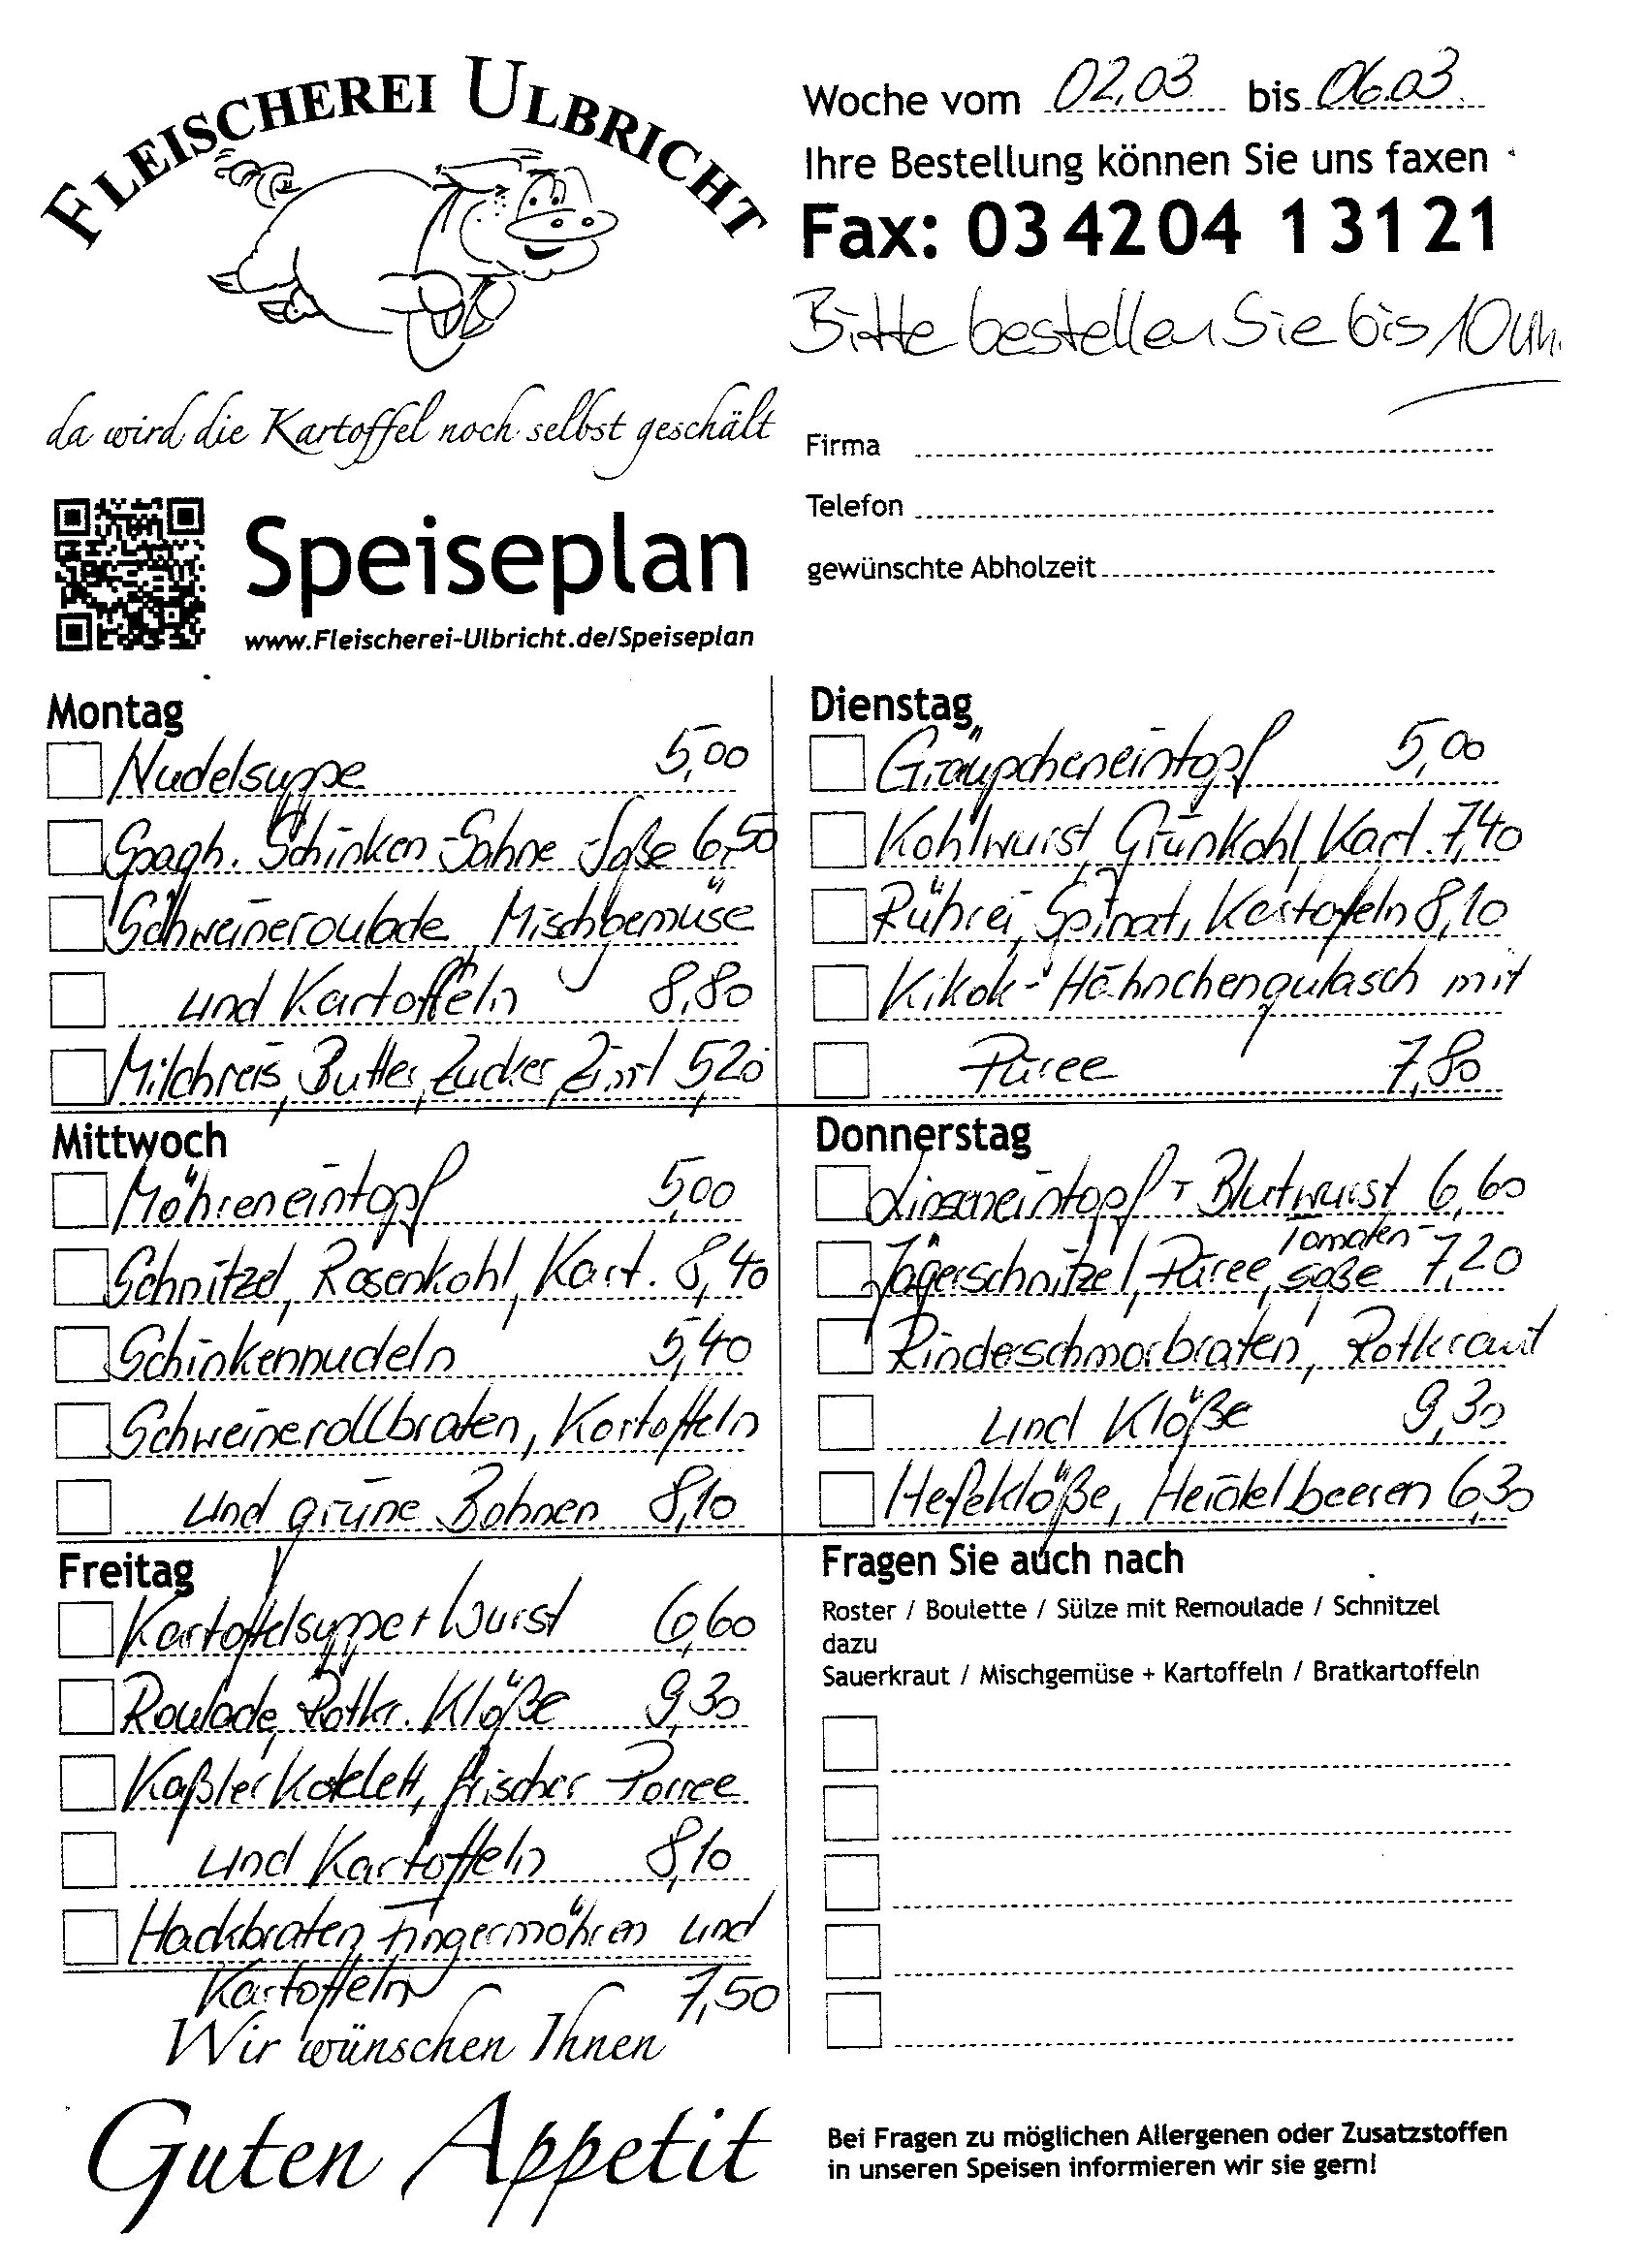 FLEISCHEREI ULBRICHT
da wird die Kartoffel noch selbst geschält
Woche vom 02.03 bis 06.03.
Ihre Bestellung können Sie uns faxen
Fax: 03 42 04 1 31 21
Bitte bestellen Sie bis 10 Uhr.
Firma
Telefon
gewünschte Abholzeit
Speiseplan
www.Fleischerei-Ulbricht.de/Speiseplan
Montag
Nudelsuppe 5,00
Spagh. Schinken-Sahne-Soße 6,50
Schweineroulade, Mischgemüse
und Kartoffeln 8,80
Milchreis, Butter, Zucker, Zimt 5,20
Dienstag
Gräupcheneintopf 5,00
Kohlwurst, Grünkohl, Kart. 7,40
Rührei, Spinat, Kartoffeln 8,10
Kikok-Hähnchengulasch mit
Püree 7,80
Mittwoch
Möhreneintopf 5,00
Schnitzel, Rosenkohl, Kart. 8,40
Schinkennudeln 5,40
Schweinerollbraten, Kartoffeln
und grüne Bohnen 8,10
Donnerstag
Linseneintopf + Blutwurst 6,60
Jägerschnitzel, Püree, Tomaten-
soße 7,20
Rinderschmorbraten, Rotkraut
und Klöße 9,30
Hefeklöße, Heidelbeeren 6,30
Freitag
Kartoffelsuppe + Wurst 6,60
Roulade, Rotkr. Klöße 9,30
Kaßler Kotelett, frischer Porree
und Kartoffeln 8,10
Hackbraten, Fingermöhren und
Kartoffeln 7,50
Fragen Sie auch nach
Roster / Boulette / Sülze mit Remoulade / Schnitzel
dazu
Sauerkraut / Mischgemüse + Kartoffeln / Bratkartoffeln
Wir wünschen Ihnen
Guten Appetit
Bei Fragen zu möglichen Allergenen oder Zusatzstoffen
in unseren Speisen informieren wir sie gern!